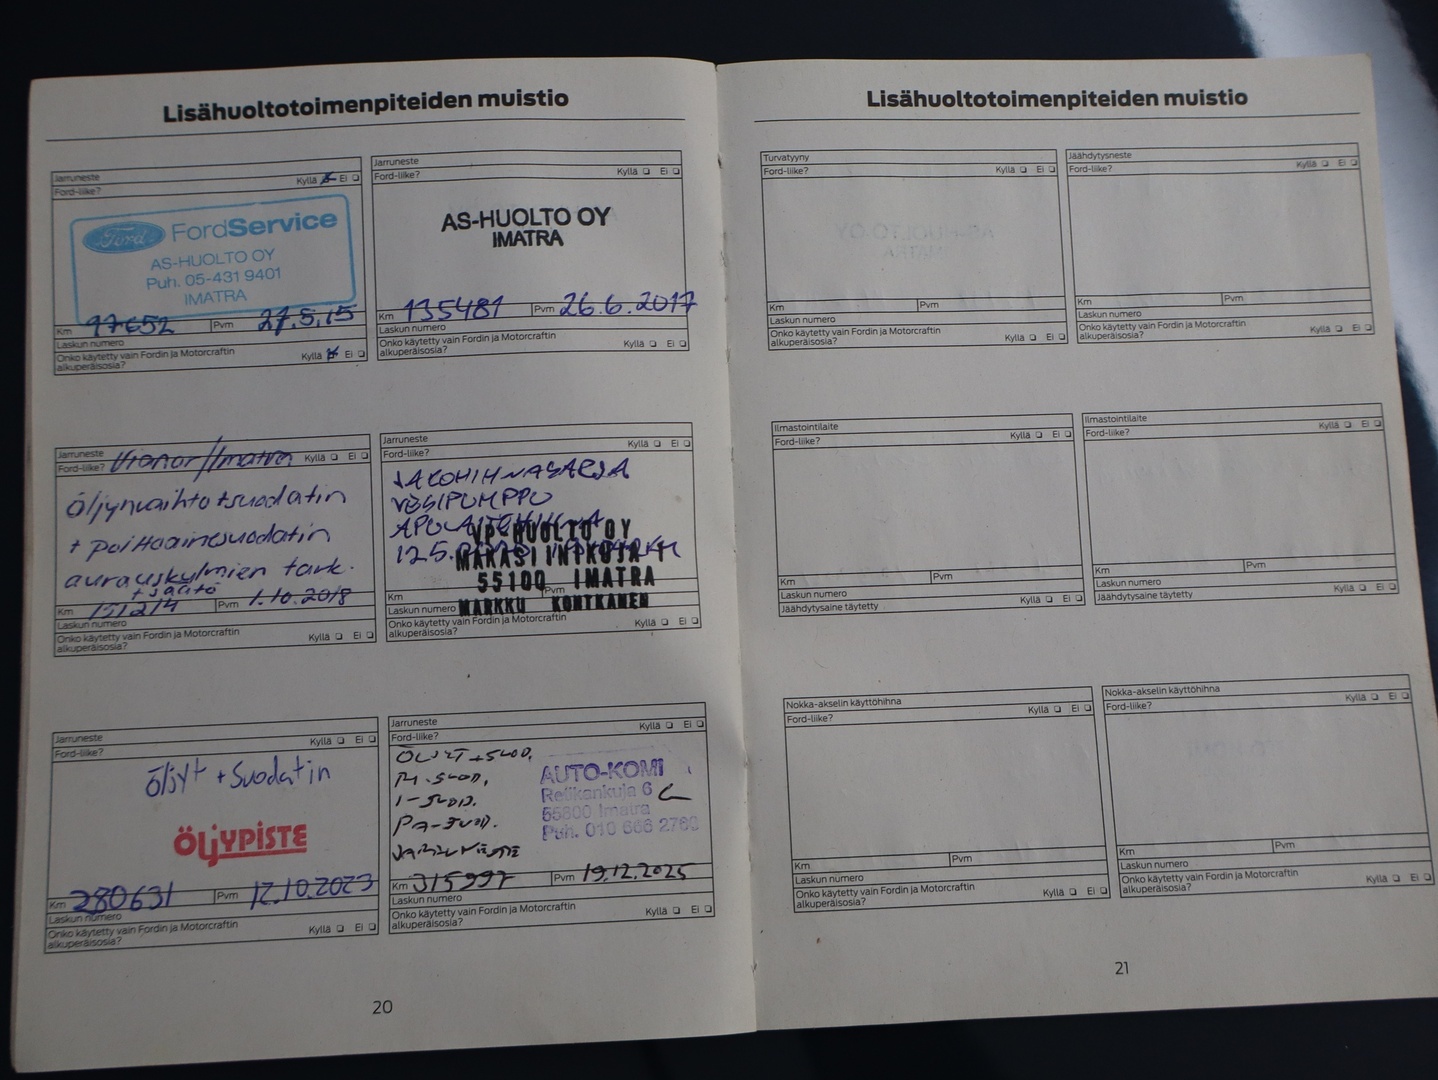 Lisähuoltotoimenpiteiden muistio
Jarruneste
Kyllä Ei
Ford-liike?
Ford
FordService
AS-HUOLTO OY
Puh. 05-431 9401
IMATRA
Km 97652 Pvm 27.5.15
Laskun numero
Onko käytetty vain Fordin ja Motorcraftin
alkuperäisosia? Kyllä Ei
Jarruneste
Ford-liike? Kyllä Ei
AS-HUOLTO OY
IMATRA
Km 135481 Pvm 26.6.2017
Laskun numero
Onko käytetty vain Fordin ja Motorcraftin
alkuperäisosia? Kyllä Ei
Jarruneste
Ford-liike? /Imatra Kyllä Ei
Öljynvaihto + suodatin
+ polttoainesuodatin
aurauskulmien tark.
+ säätö
Km 151214 Pvm 1.10.2018
Laskun numero
Onko käytetty vain Fordin ja Motorcraftin
alkuperäisosia? Kyllä Ei
Jarruneste
Ford-liike? Kyllä Ei
JAKOHIHNASARJA
VESIPUMPPU
APULAITEHIHNA
VP-HUOLTO OY
MAKASIININKUJA 1
55100 IMATRA
Km Pvm
Laskun numero MARKKU KONTKANEN
Onko käytetty vain Fordin ja Motorcraftin
alkuperäisosia? Kyllä Ei
Jarruneste
Ford-liike? Kyllä Ei
Öljyt + Suodatin
ÖLJYPISTE
Km 280631 Pvm 12.10.2023
Laskun numero
Onko käytetty vain Fordin ja Motorcraftin
alkuperäisosia? Kyllä Ei
Jarruneste
Ford-liike? Kyllä Ei
ÖLJYT + SUOD.
R-SUOD.
I-SUOD.
PA-SUOD.
JARRUNESTE
AUTO-KOMI
Retikankuja 6
55800 Imatra
Puh. 010 666 2760
Km 315997 Pvm 19.12.2025
Laskun numero
Onko käytetty vain Fordin ja Motorcraftin
alkuperäisosia? Kyllä Ei
20
Lisähuoltotoimenpiteiden muistio
Turvatyyny
Ford-liike? Kyllä Ei
Km Pvm
Laskun numero
Onko käytetty vain Fordin ja Motorcraftin
alkuperäisosia? Kyllä Ei
Jäähdytysneste
Ford-liike? Kyllä Ei
Km Pvm
Laskun numero
Onko käytetty vain Fordin ja Motorcraftin
alkuperäisosia? Kyllä Ei
Ilmastointilaite
Ford-liike? Kyllä Ei
Km Pvm
Laskun numero
Jäähdytysaine täytetty Kyllä Ei
Ilmastointilaite
Ford-liike? Kyllä Ei
Km Pvm
Laskun numero
Jäähdytysaine täytetty Kyllä Ei
Nokka-akselin käyttöhihna
Ford-liike? Kyllä Ei
Km Pvm
Laskun numero
Onko käytetty vain Fordin ja Motorcraftin
alkuperäisosia? Kyllä Ei
Nokka-akselin käyttöhihna
Ford-liike? Kyllä Ei
Km Pvm
Laskun numero
Onko käytetty vain Fordin ja Motorcraftin
alkuperäisosia? Kyllä Ei
21